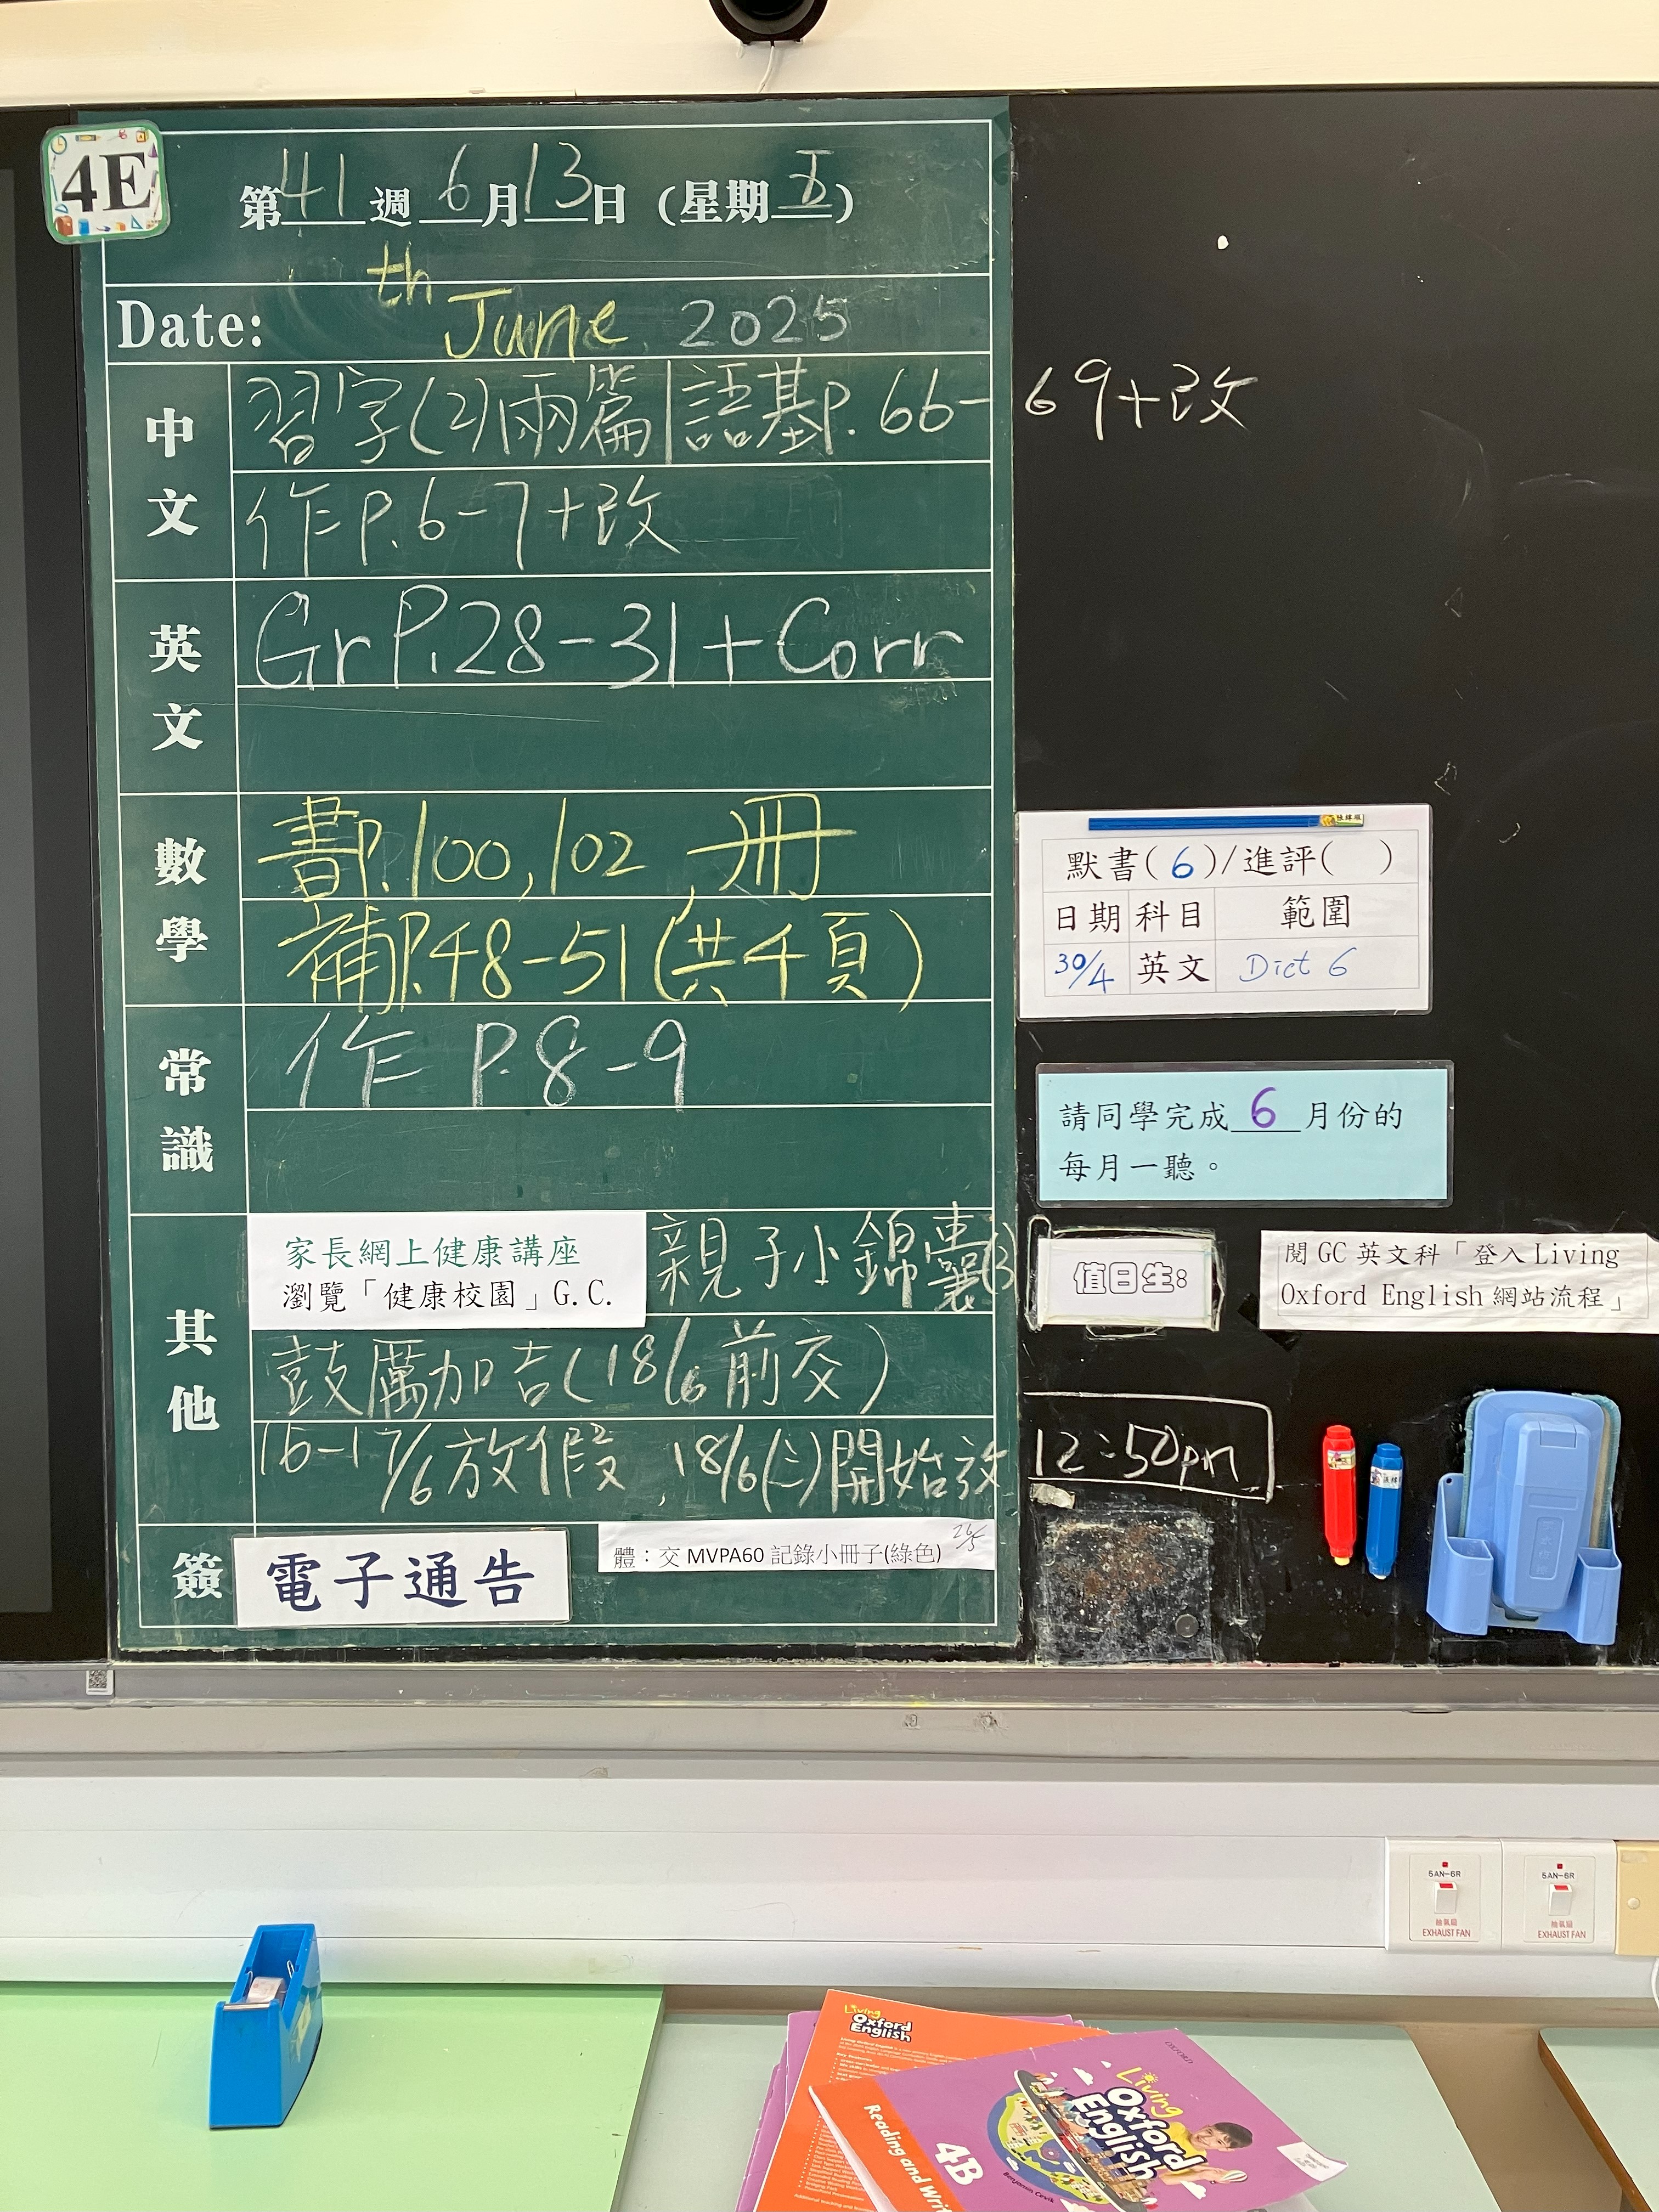 4E
第41週 6月13日 (星期五)
Date: th June, 2025
中文
習字(2)兩篇|語基P.66-69+改
作P.6-7+改
英文
Gr P.28-31+Corr
數學
書P.100,102,冊
補P.48-51(共4頁)
常識
作 P.8-9
其他
家長網上健康講座
瀏覽「健康校園」G.C.
親子小錦囊
鼓厲加吉(18/6前交)
16-17/6放假,18/6(三)開始放12:50pm
簽
電子通告
體：交 MVPA60 記錄小冊子(綠色)
26/5
默書(6)/進評( )
日期 科目 範圍
30/4 英文 Dict 6
請同學完成6月份的
每月一聽。
值日生:
閱 GC 英文科「登入 Living
Oxford English 網站流程」
5AN-6R
抽氣扇
EXHAUST FAN
5AN-6R
抽氣扇
EXHAUST FAN
Living
Oxford
English
Reading and Writ
OXFORD
Living
Oxford
English
4B